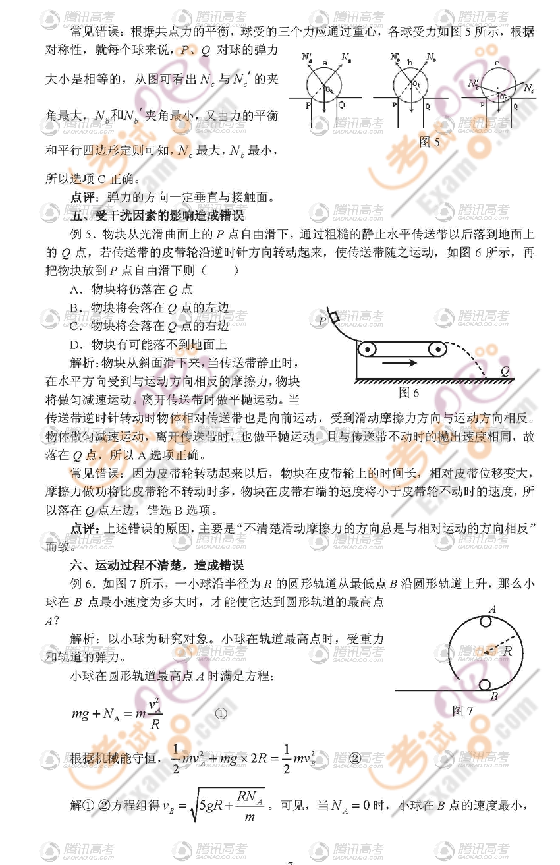 常见错误：根据共点力的平衡，球受的三个力应通过重心，各球受力如图 5 所示，根据
对称性，就每个球来说，P、Q 对球的弹力
大小是相等的，从图可看出 N_c 与 N_c' 的夹
角最大，N_b和N_b' 夹角最小，又由力的平衡
和平行四边形定则可知，N_c 最大，N_b 最小，
所以选项 C 正确。
图 5
点评：弹力的方向一定垂直与接触面。
五、受干扰因素的影响造成错误
例 5．物块从光滑曲面上的 P 点自由滑下，通过粗糙的静止水平传送带以后落到地面上
的 Q 点，若传送带的皮带轮沿逆时针方向转动起来，使传送带随之运动，如图 6 所示，再
把物块放到 P 点自由滑下则（　　）
A．物块将仍落在 Q 点
B．物块将会落在 Q 点的左边
C．物块将会落在 Q 点的右边
D．物块有可能落不到地面上
P
Q
图 6
解析：物块从斜面滑下来，当传送带静止时，
在水平方向受到与运动方向相反的摩擦力，物块
将做匀减速运动。离开传送带时做平抛运动。当
传送带逆时针转动时物体相对传送带也是向前运动，受到滑动摩擦力方向与运动方向相反。
物体做匀减速运动，离开传送带时，也做平抛运动，且与传送带不动时的抛出速度相同，故
落在 Q 点，所以 A 选项正确。
常见错误：因为皮带轮转动起来以后，物块在皮带轮上的时间长，相对皮带位移变大，
摩擦力做功将比皮带轮不转动时多，物块在皮带右端的速度将小于皮带轮不动时的速度，所
以落在 Q 点左边，错选 B 选项。
点评：上述错误的原因，主要是“不清楚滑动摩擦力的方向总是与相对运动的方向相反”
而致。
六、运动过程不清楚，造成错误
例 6．如图 7 所示，一小球沿半径为 R 的圆形轨道从最低点 B 沿圆形轨道上升，那么小
球在 B 点最小速度为多大时，才能使它达到圆形轨道的最高点
A？
A
R
B
图 7
解析：以小球为研究对象。小球在轨道最高点时，受重力
和轨道的弹力。
小球在圆形轨道最高点 A 时满足方程：
mg + N_A = m v_A²/R　　①
根据机械能守恒，1/2 mv_A² + mg × 2R = 1/2 mv_B²　　②
解①②方程组得 v_B = √(5gR + RN_A/m) 。可见，当 N_A = 0 时，小球在 B 点的速度最小，